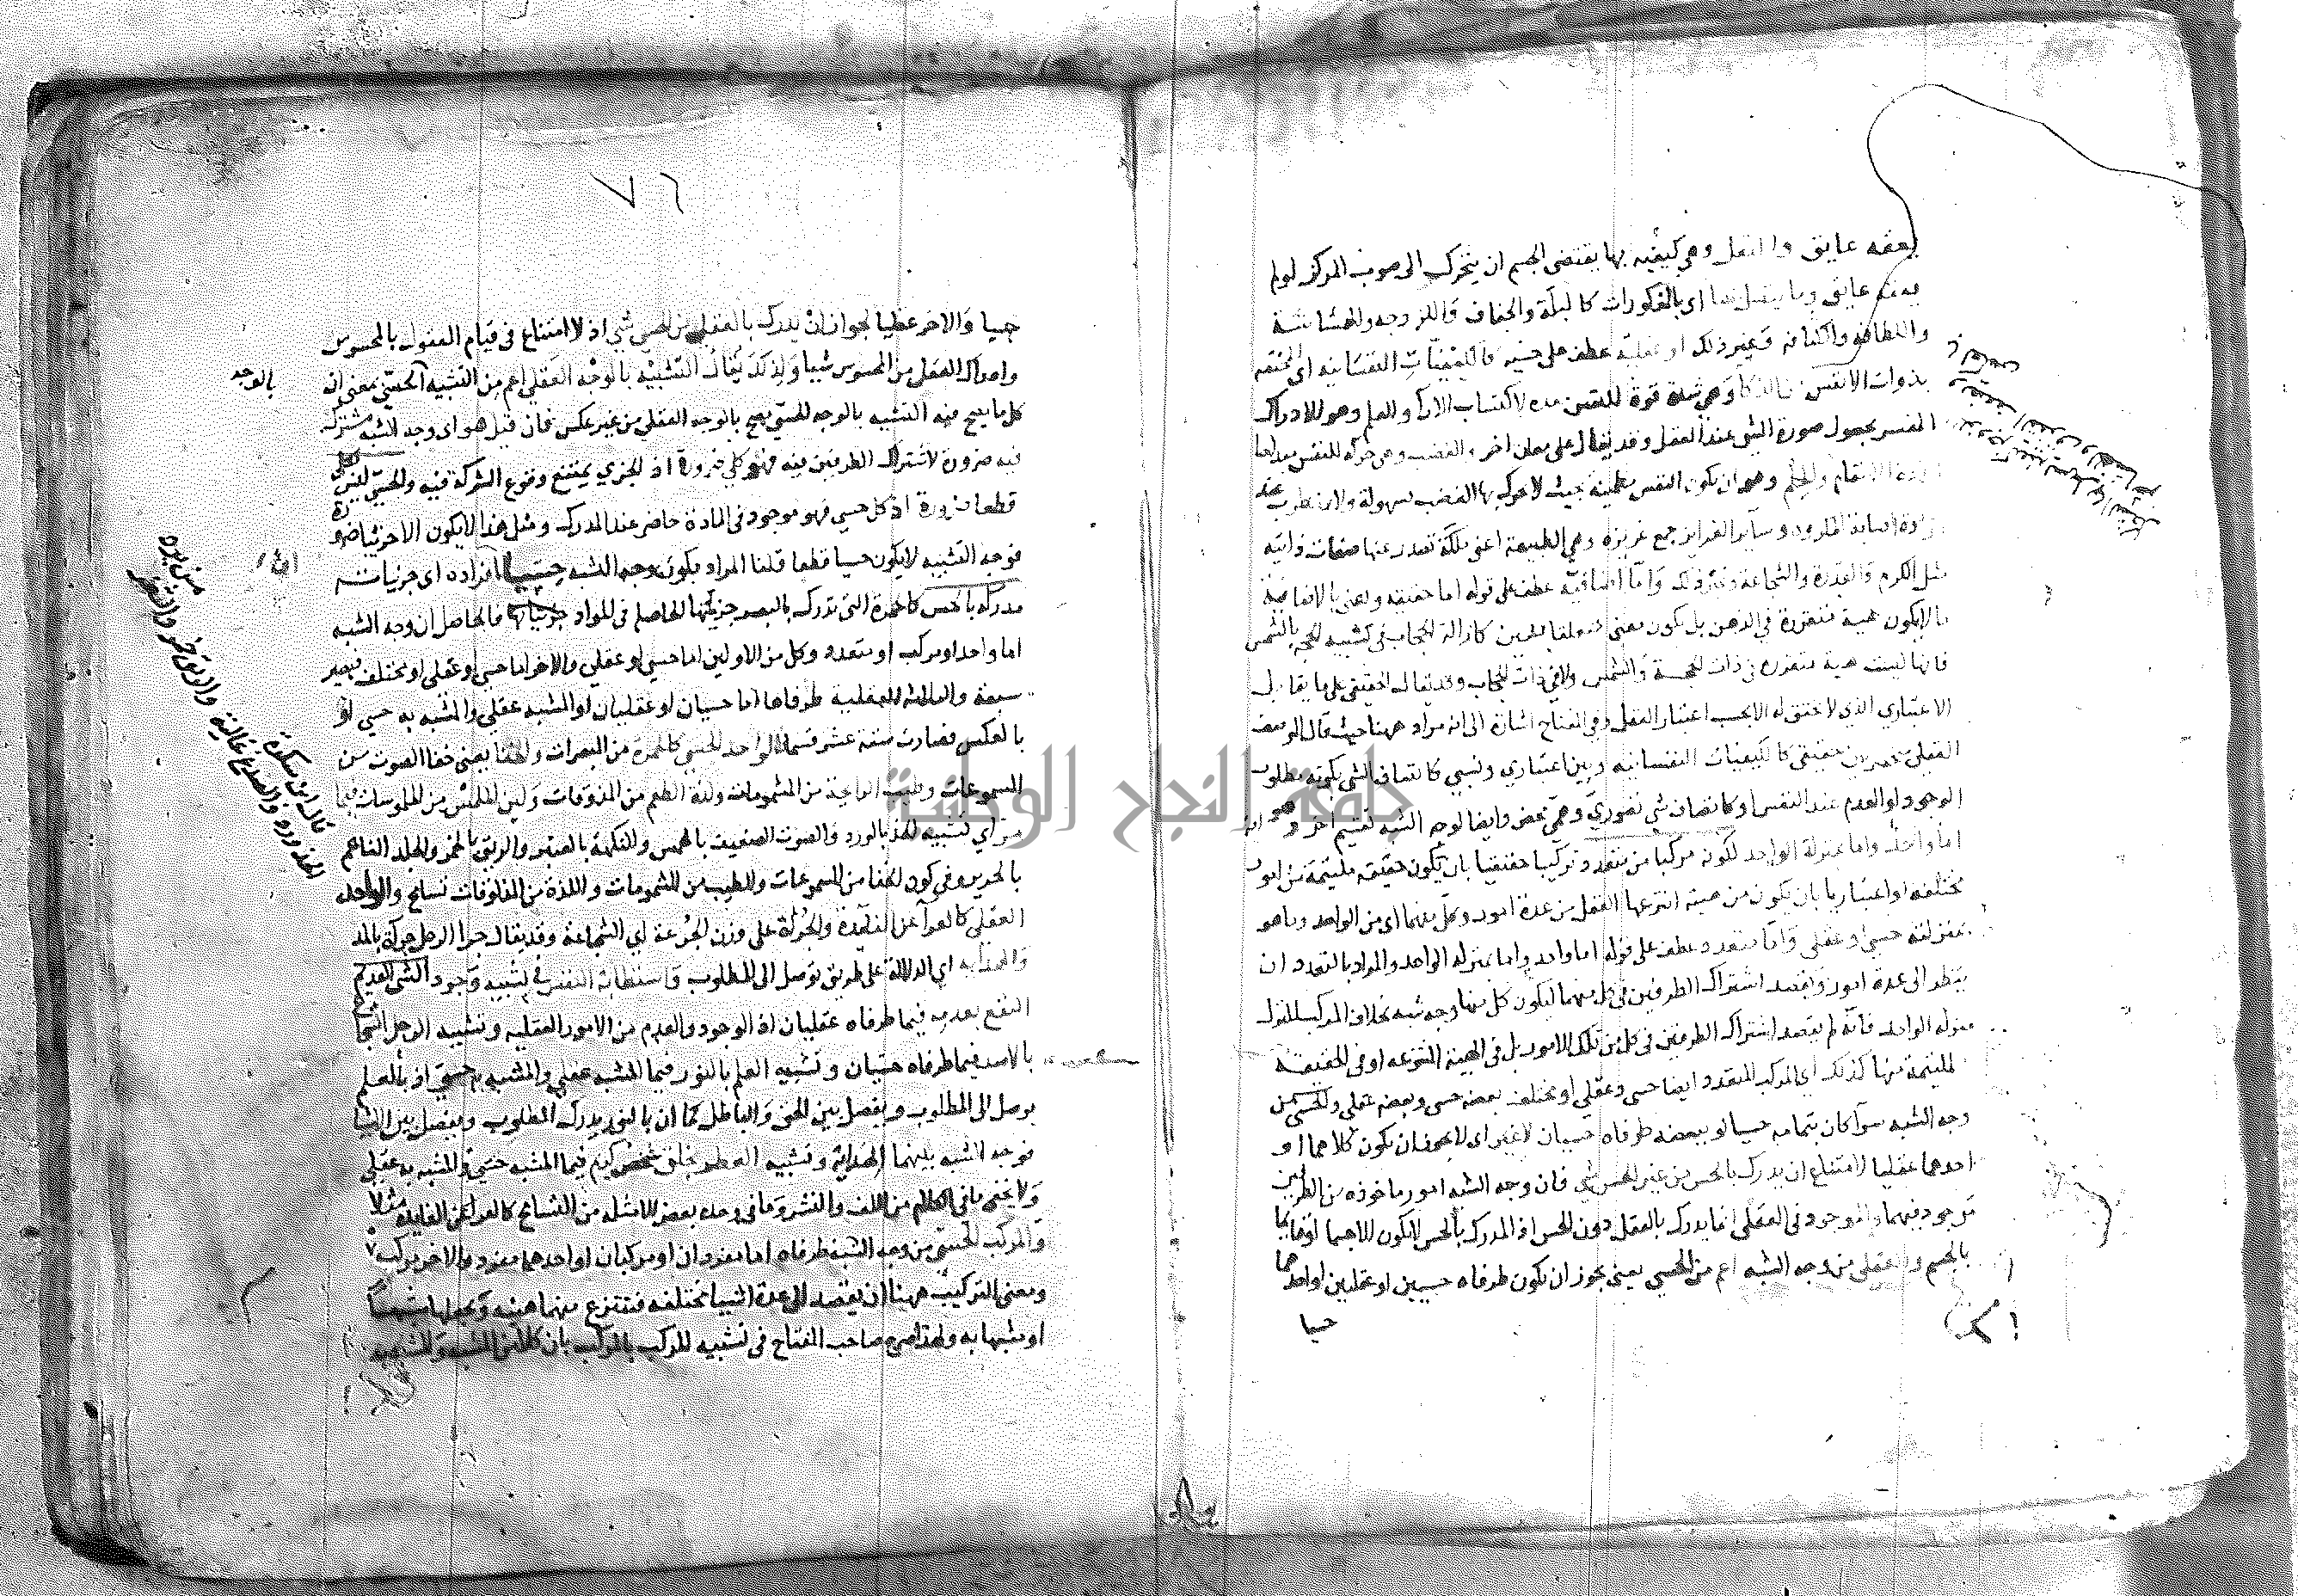 يعقه عايق والثقل وهي كيفية بها يقتضي الجسم ان يتحرك الى صوب المركز لو لم
يعقه عايق وما يتصل بها اي بالمذكورات كالبلة والجفاف واللزوجه والهشاشة
واللطافة والكثافة وغير ذلك او عقلية عطف على حسيه كالكيفيات النفسانيه اي المختصه
بذوات الانفس من الذكا وهي شدة قوة للنفس معده لاكتساب الارا والعلم وهو الادراك
المفسر بحصول صورة الشي عند العقل وقد يقال على معان اخر والغضب وهي حركة للنفس مبداها
ارادة الانتقام والحلم وهو ان تكون النفس مطمئنه بحيث لا يحركها الغضب بسهولة ولا تضطرب عند
اصابة المكروه وساير الغرايز جمع غريزة وهي الطبيعة اعني ملكة تصدر عنها صفات ذاتية
مثل الكرم والقدرة والشجاعة وغير ذلك واما اضافية عطف على قوله اما حقيقيه ونعني بالاضافية
ما لا يكون هيية متقررة في الذهن بل تكون معنى متعلقا بشيين كازالة الحجاب في تشبيه الحجة بالشمس
فانها ليست هية متقررة في ذات الحجة والشمس ولا في ذات الحجاب وقد يقال الحقيقي على ما يقابل
الاعتباري الذي لا تحقق له الا بحسب اعتبار العقل وفي المفتاح اشارة الى انه مراد ههنا حيث قال الوصف
العقلي منحصر بين حقيقي كالكيفيات النفسانيه وبين اعتباري ونسبي كاتصاف الشي بكونه مطلوب
الوجود او العدم عند النفس او كاتصاف شي تصوري وهمي محض وايضا لوجه الشبه تقسيم اخر وهو انه
اما واحد واما بمنزلة الواحد لكونه مركبا من متعدد تركيبا حقيقيا بان تكون حقيقة ملتئمة من امور
مختلفه او اعتباريا بان يكون من هيية انتزعها العقل من عدة امور وكل منهما اي من الواحد وما هو
بمنزلته حسي او عقلي واما متعدد عطف على قوله اما واحد واما بمنزله الواحد والمراد بالتعدد ان
ينظر الى عدة امور ويقصد اشتراك الطرفين في كل منهما ليكون كل منها وجه شبه بخلاف المركب المنزل
منزله الواحد فانه لم يقصد اشتراك الطرفين في كل من تلك الامور بل في الهيية المنتزعه او في الحقيقة
الملتيمة منها كذلك اي المركب المتعدد ايضا حسي وعقلي او مختلف بعضه حسي وبعضه عقلي والحسي من
وجه الشبه سوآ كان بتمامه حسيا او ببعضه طرفاه حسيان لا غير اي لا يجوز ان يكون كلاهما او
احدهما عقليا لامتناع ان يدرك بالحس من غير الحس شي فان وجه الشبه امور ماخوذه من الطرفين
موجود فيهما والموجود في العقلي انما يدرك بالعقل دون الحس اذ المدرك بالحس لا يكون الا جسما او قايما
بالجسم والعقلي من وجه الشبه اعم من الحسي يعني يجوز ان يكون طرفاه حسيين او عقليين او احدهما
حسيا
٧٦
حسيا والاخر عقليا لجواز ان يدرك بالعقلي من الحسي شي اذ لا امتناع في قيام المعقول بالمحسوس
وادراك العقل من المحسوس شيا ولذلك يقال التشبيه بالوجه العقلي اعم من التشبيه الحسي بمعنى ان
بالوجه
كل ما يصح فيه التشبيه بالوجه الحسي يصح بالوجه العقلي من غير عكس فان قيل هو اي وجه الشبه مشترك
فيه ضرورة لاشتراك الطرفين فيه فهو كلي ضرورة اذ الجزي يمتنع وقوع الشركة فيه والحسي ليس بكلي
قطعا ضرورة اذ كل حسي فهو موجود في المادة حاضر عند المدرك ومثل هذا لا يكون الا جزئيا ضرورة
فوجه التشبيه لا يكون حسيا قطعا قلنا المراد بكون وجه الشبه حسيا ان افراده اي جزئياته
مدركة بالحس كالحمرة التي تدرك بالبصر جزئياتها الحاصله في المواد فالحاصل ان وجه الشبه
اما واحد او مركب او متعدد وكل من الاولين اما حسي او عقلي والاخر اما حسي او عقلي او مختلف فيصير
سبعة والثلاثة العقلية طرفاها اما حسيان او عقليان او المشبه عقلي والمشبه به حسي او
بالعكس فصارت ستة عشر قسما الواحد الحسي كالحمرة من المبصرات والخفا يعني خفا الصوت من
المسموعات وطيب الرايحة من المشمومات ولذة الطعم من المذوقات ولين الملمس من الملموسات فيما
مر اي تشبيه الخد بالورد والصوت الضعيف بالهمس والنكهة بالعنبر والريق بالخمر والجلد الناعم
بالحرير وفي كون الخفا من المسموعات والطيب من المشمومات واللذة من المذوقات تسامح والواحد
العقلي كالعرآ عن الفايدة والجراة على وزن الجرعة اي الشجاعة وقد يقال جرا الرجل جراة بالمد
والهداية اي الدلالة على طريق توصل الى المطلوب واستطابة النفس في تشبيه وجود الشي العديم
النفع بعدمه فيما طرفاه عقليان اذ الوجود والعدم من الامور العقليه وتشبيه الرجل الشجاع
بالاسد فيما طرفاه حسيان وتشبيه العلم بالنور فيما المشبه عقلي والمشبه به حسي اذ بالعلم
يوصل الى المطلوب ويفصل بين الحق والباطل كما ان بالنور يدرك المطلوب ويفصل بين الاشيا
فوجه الشبه بينهما الهداية وتشبيه العطر بخلق شخص كريم فيما المشبه حسي والمشبه به عقلي
ولا يخفى ما في الكلام من اللف والنشر وما في وحدة بعض الامثلة من التسامح كالعرا عن الفايده مثلا
والمركب الحسي من وجه الشبه طرفاه اما مفردان او مركبان او احدهما مفرد والاخر مركب
ومعنى التركيب ههنا ان يقصد الى عدة اشيا مختلفه فتنتزع منهما هيئة وتجعلها مشبها
او مشبها به ولهذا صرح صاحب المفتاح في تشبيه المركب بالمركب بان كلا من المشبه والمشبه به
قال ابن سكرة
الخد ورد والصدغ غالية والريق خمر والثغر
من درر
جامعة النجاح الوطنية